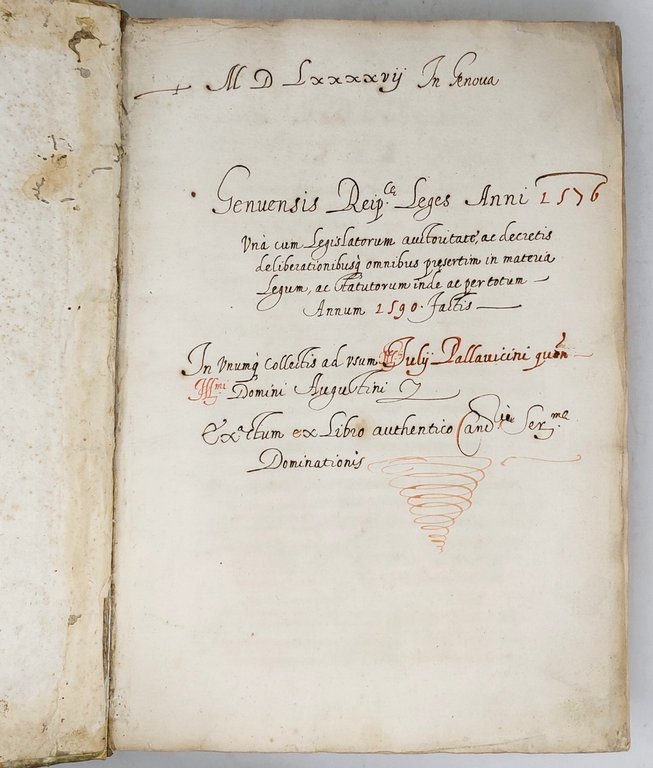 M D Lxxxxvij In Genova
Genuensis Reip.ce Leges Anni 1576
Vnà cum Legislatorum auctoritate, ac decretis
deliberationibusq omnibus presertim in materia
Legum, ac statutorum inde ac per totum
Annum 1590. factis
In Vnumq Collectis ad vsum Julij Pallauicini quon
Ill.mi Domini Augustini
Ex.ctum ex Libro authentico Canc Ser.me
Dominationis